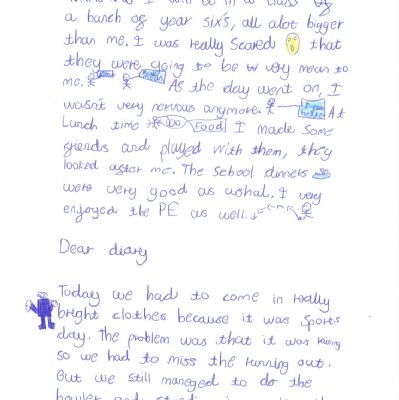 a bunch of year six's, all alot bigger
than me. I was really Scared that
they were going to be very mean to
me. As the day went on, I
wasn't very nervous anymore. At
Lunch time Food I made some
friends and played with them, they
looked after me. The school dinners
were very good as ushal. I very
enjoyed the PE as well.
Dear diary
Today we had to come in really
bright clothes because it was sports
day. The problem was that it was raining
so we had to miss the running out.
But we still maneged to do the